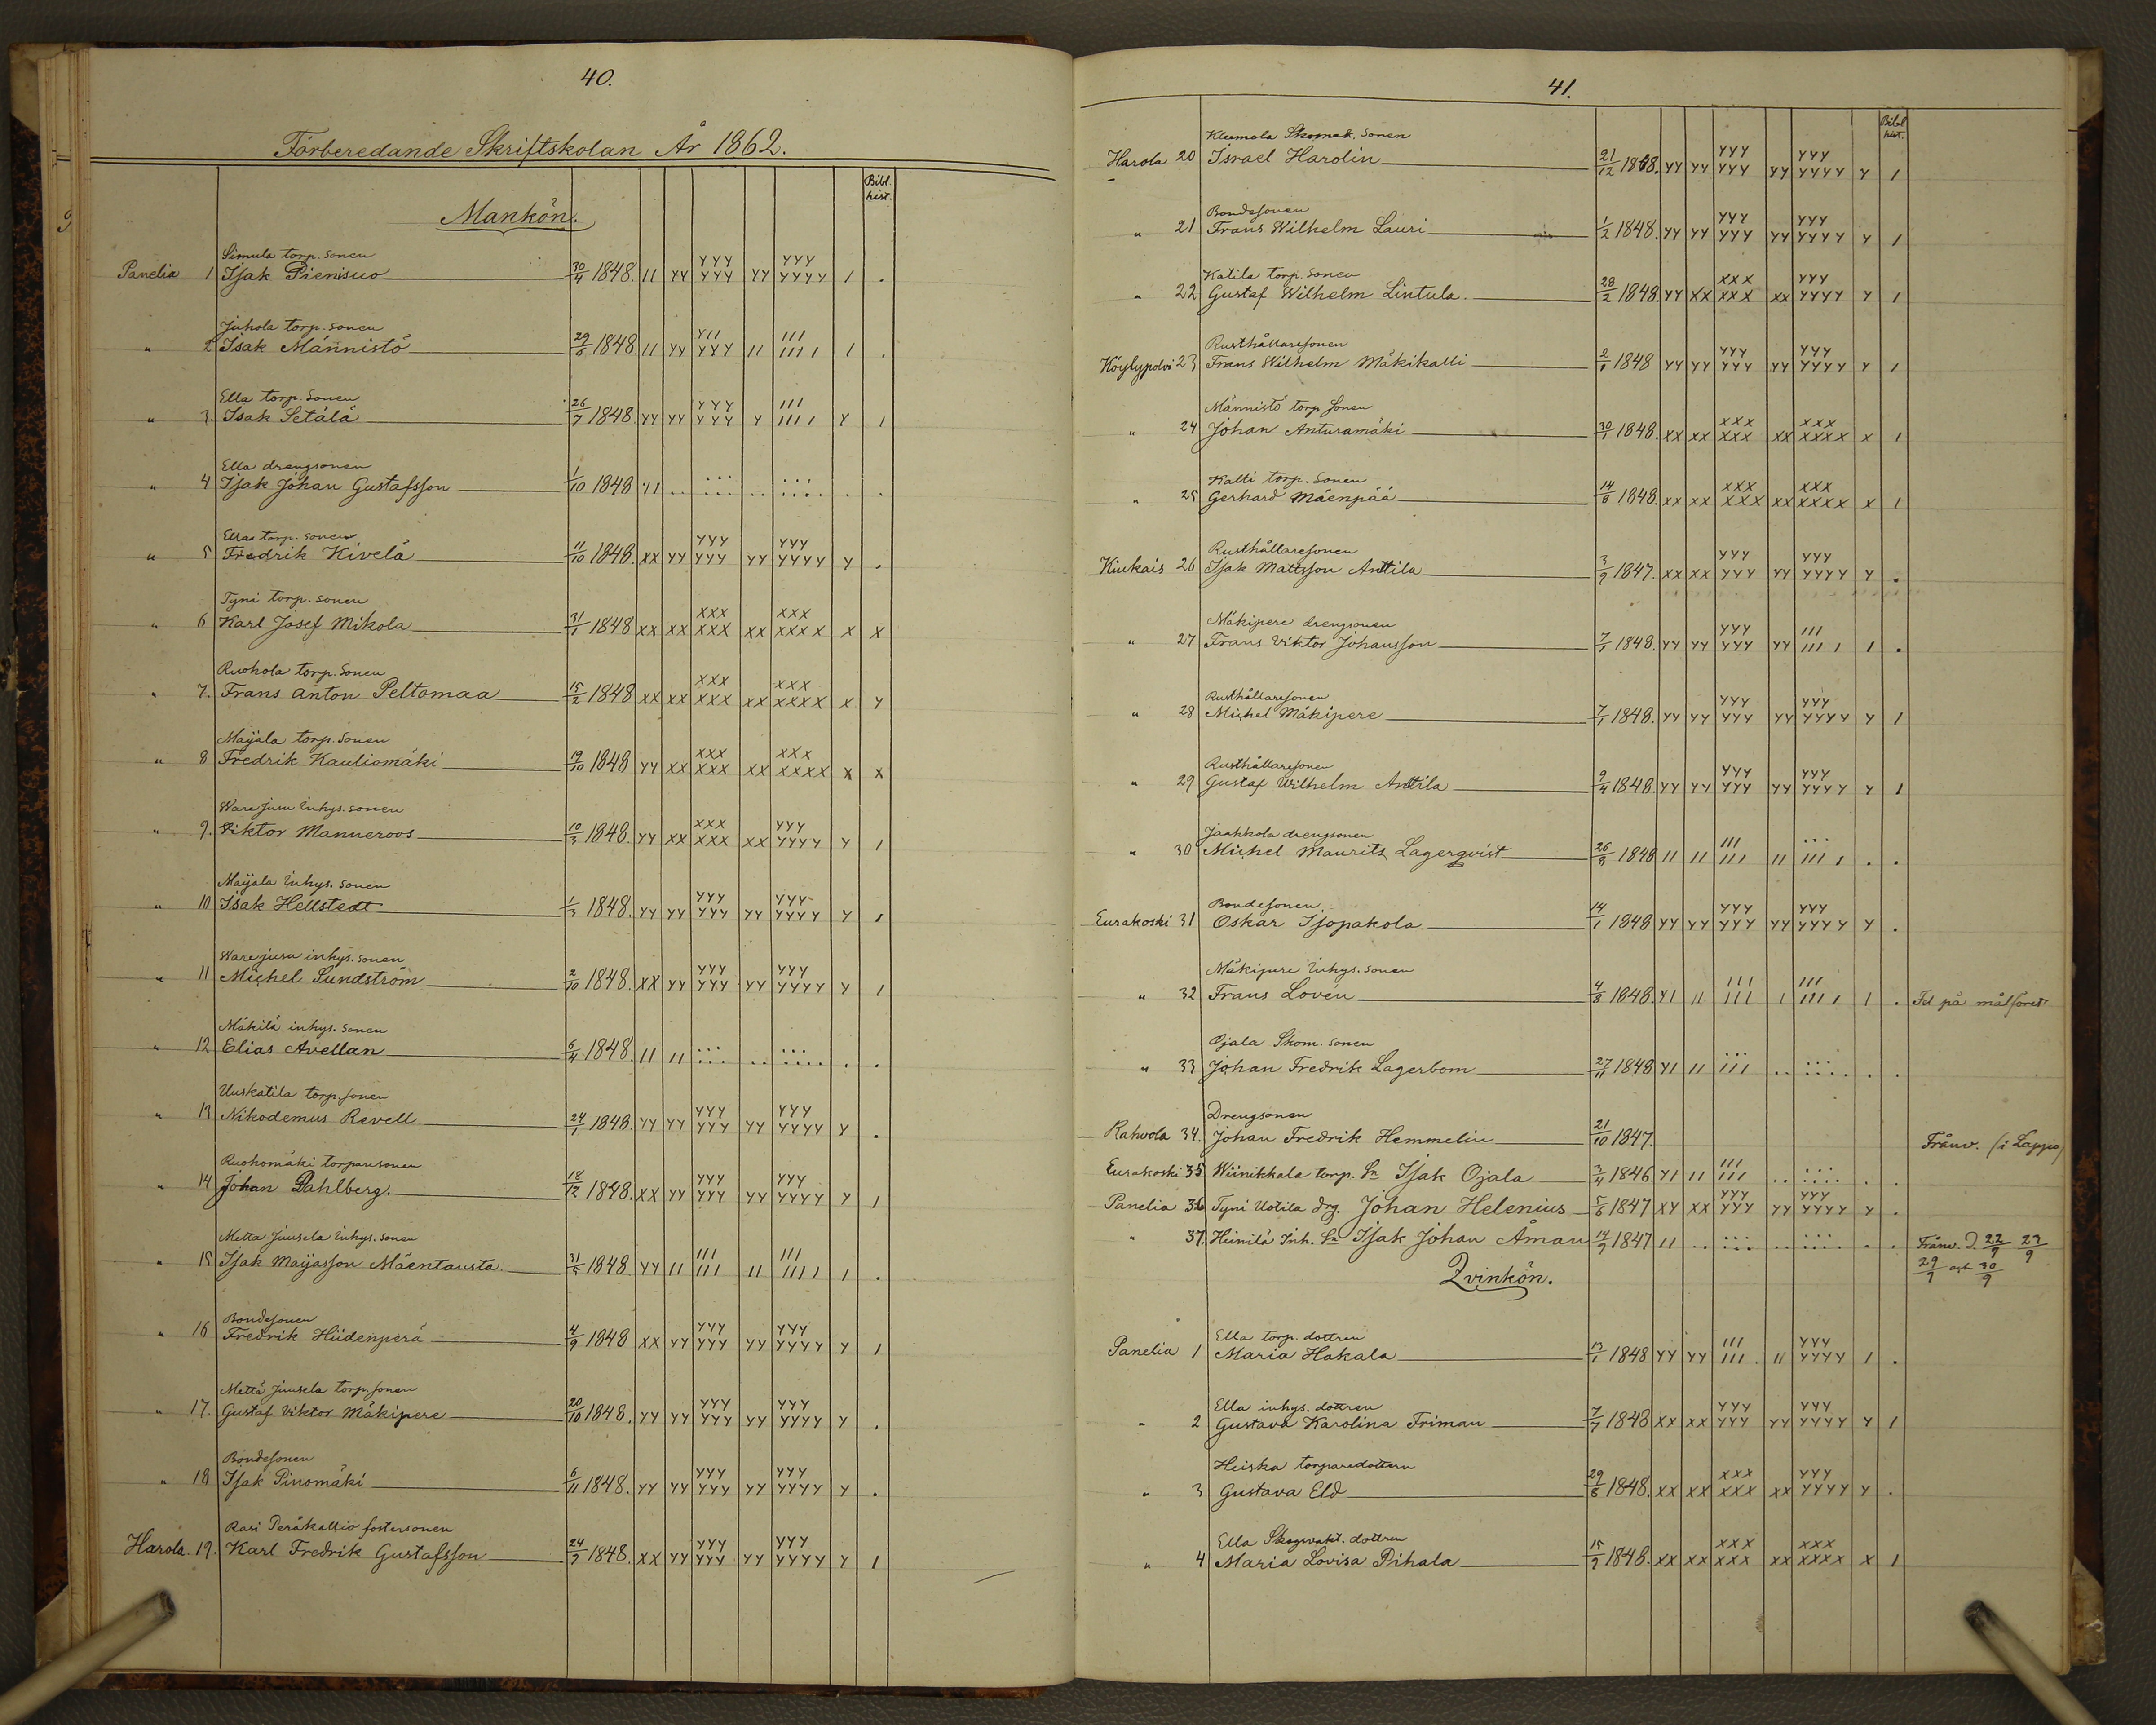 40.
Förberedande Skriftskolan År 1862.
Bibl. hist.
Mankön.
Simula torp. sonen
Panelia 1 Isak Pienisuo 30/4 1848. 11 YY YYY YYY YY YYY YYYY 1 .
Juhola torp. sonen
" 2 Isak Männistö 29/6 1848. 11 YY Y11 YYY 11 111 1111 1 .
Ella torp. sonen
" 3. Isak Setälä 26/7 1848. YY YY YYY YYY Y 111 1111 Y 1
Ella drengsonen
" 4 Isak Johan Gustafsson 1/10 1848 Y1 .. ... ... .. ... .... . .
Ella torp. sonen
" 5 Fredrik Kivelä 11/10 1848. XX YY YYY YYY YY YYY YYYY Y .
Tyni torp. sonen
" 6 Karl Josef Mikola 31/1 1848 XX XX XXX XXX XX XXX XXXX X X
Ruohola torp. sonen
" 7. Frans Anton Peltomaa 15/2 1848 XX XX XXX XXX XX XXX XXXX X Y
Maijala torp. sonen
" 8 Fredrik Kauliomäki 19/10 1848 YY XX XXX XXX XX XXX XXXX X X
Warejusu inhys. sonen
" 9. Viktor Manneroos 10/3 1848. YY XX XXX XXX XX YYY YYYY Y 1
Maijala inhys. sonen
" 10 Isak Hellstedt 1/3 1848. YY YY YYY YYY YY YYY YYYY Y 1
Warejusu inhys. sonen
" 11 Michel Sundström 2/10 1848. XX YY YYY YYY YY YYY YYYY Y 1
Mäkilä inhys. sonen
" 12 Elias Avellan 5/4 1848. 11 11 ... ... .. ... .... . .
Uuskatila torp. sonen
" 13 Nikodemus Revell 24/1 1848. YY YY YYY YYY YY YYY YYYY Y .
Ruohomäki torparesonen
" 14 Johan Dahlberg. 18/12 1848. XX YY YYY YYY YY YYY YYYY Y 1
Metta Juusela inhys. sonen
" 15 Isak Maijasson Mäentausta. 31/5 1848 YY 11 111 111 11 111 1111 1 .
Bondesonen
" 16 Fredrik Hiidenperä 4/9 1848 XX YY YYY YYY YY YYY YYYY Y 1
Mettä Juusela torp. sonen
" 17. Gustaf Viktor Mäkipere 20/10 1848. YY YY YYY YYY YY YYY YYYY Y .
Bondesonen
" 18 Isak Pirromäki 6/11 1848. YY YY YYY YYY YY YYY YYYY Y .
Rasi Peräkallio fostersonen
Harola. 19. Karl Fredrik Gustafsson 24/7 1848. XX YY YYY YYY YY YYY YYYY Y 1
41.
Bibl hist.
Kleemola Skomak. sonen
Harola 20 Israel Harolin 21/12 1848. YY YY YYY YYY YY YYY YYYY Y 1
Bondesonen
" 21 Frans Wilhelm Lauri 1/2 1848. YY YY YYY YYY YY YYY YYYY Y 1
Katila torp. sonen
" 22 Gustaf Wilhelm Lintula. 28/2 1848 YY XX XXX XXX XX YYY YYYY Y 1
Rusthållaresonen
Köylypolvi 23 Frans Wilhelm Mäkikalli 2/1 1848 YY YY YYY YYY YY YYY YYYY Y 1
Männistö torp. sonen
" 24 Johan Anturamäki 30/1 1848. XX XX XXX XXX XX XXX XXXX X 1
Kalli torp. sonen
" 25 Gerhard Mäenpää 14/8 1848. XX XX XXX XXX XX XXX XXXX X 1
Rusthållaresonen
Kiukais 26 Isak Mattsson Anttila 3/9 1847. XX XX YYY YYY YY YYY YYYY Y .
Mäkipere drengsonen
" 27 Frans Viktor Johansson 7/1 1848. YY YY YYY YYY YY 111 1111 1 .
Rusthållaresonen
" 28 Michel Mäkipere 7/1 1848. YY YY YYY YYY YY YYY YYYY Y 1
Rusthållaresonen
" 29 Gustaf Wilhelm Anttila 9/4 1848. YY YY YYY YYY YY YYY YYYY Y 1
Jaakkola drengsonen
" 30 Michel Mauritz Lagerqvist 26/8 1848 11 11 111 111 11 ... 1111 . .
Bondesonen
Eurakoski 31 Oskar Isopakola 14/1 1848 YY YY YYY YYY YY YYY YYYY Y .
Mäkipere inhys. sonen
" 32 Frans Lovén 4/8 1848. Y1 11 111 111 1 111 1111 1 . Fel på målföret
Ojala Skom. sonen
" 33 Johan Fredrik Lagerbom 27/11 1848 Y1 11 ... 111 .. ... .... . .
Drengsonen
Rahvola 34. Johan Fredrik Hemmelin 21/10 1847. Frånv. (i Lappo)
Eurakoski 35 Wiinikkala torp. Sn Isak Ojala 3/4 1846. Y1 11 111 111 .. ... .... . .
Panelia 36 Tyni Uotila drg. Johan Helenius 5/6 1847 XY XX YYY YYY YY YYY YYYY Y .
" 37. Heinilä Inh. Sn Isak Johan Åman 14/9 1847 11 .. ... ... .. ... .... . . Frånv. d. 22/9 23/9
29/9 och 30/9
Qvinkön.
Ella torp. dottren
Panelia 1 Maria Hakala 13/1 1848 YY YY 111 111 11 YYY YYYY 1 .
Ella inhys. dottren
" 2 Gustava Karolina Friman 7/7 1848 XX XX YYY YYY YY YYY YYYY Y 1
Heiska torparedottern
" 3 Gustava Eld 29/8 1848. XX XX XXX XXX XX YYY YYYY Y .
Ella Skogsvakt. dottren
" 4 Maria Lovisa Pihala 15/9 1848. XX XX XXX XXX XX XXX XXXX X 1